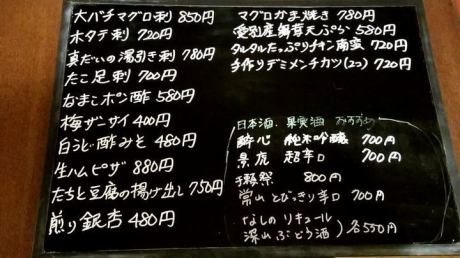 大バチマグロ刺 850円
ホタテ刺 720円
真だいの湯引き刺 780円
たこ足刺 700円
なまこポン酢 580円
梅ザンサイ 400円
白うど酢みそ 480円
生ハムピザ 880円
たちと豆腐の揚げ出し 750円
煎り銀杏 480円
マグロかま焼き 780円
愛別産舞茸天ぷら 580円
タルタルたっぷりチキン南蛮 720円
手作りデミメンチカツ(2コ) 720円
日本酒、果実酒
酔心 純米吟醸 700円
景虎 超辛口 700円
獺祭 800円
常山 とびっきり辛口 700円
なしのリキュール
深山ぶどう酒 各550円